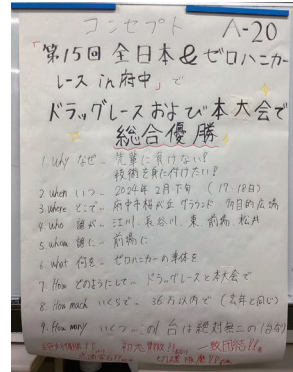 コンセプト
A-20
「第15回 全日本&ゼロハンカー
レース in 府中」で
ドラッグレースおよび本大会で
総合優勝
1. Why なぜ… 先輩に負けない!
技術を身に付けたい!
2. when いつ… 2024年2月下旬 (17・18日)
3. where どこで… 府中市桜が丘 グラウンド 多目的広場
4. who 誰が… 江川、長谷川、東、前場、松井
5. whom 誰に… 前場に
6. what 何を… ゼロハンカーの車体を
7. How どのようにして… ドラッグレースと本大会で
8. How much いくらで… 36万以内で (去年と同じ)
9. How many いくつ… この1台は絶対無二の1台
初志貫徹!!
一致団結!!
切磋琢磨!!